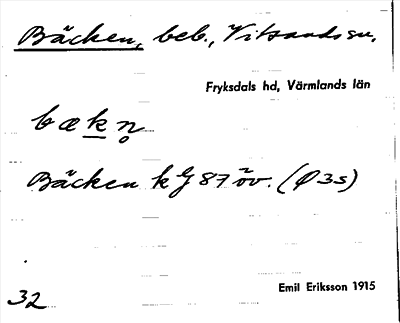 Bäcken, beb., Vitsands sn,
Fryksdals hd, Värmlands län
bækn̥
Bäcken kg 87 öv. (Ø 3s)
32
Emil Eriksson 1915